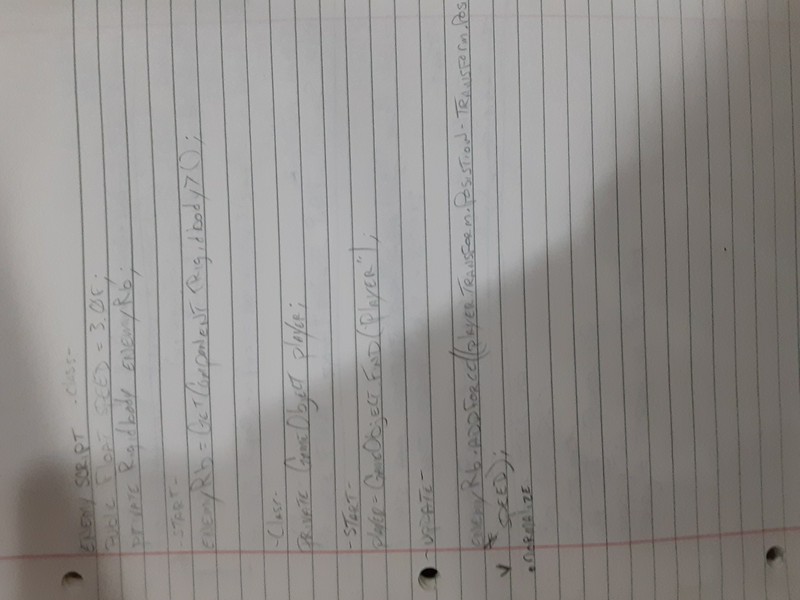 ENEMY SCRIPT -CLASS-
PUBLIC FLOAT SPEED = 3.0F;
PRIVATE Rigidbody ENEMYRb;
-START-
ENEMYRb = GETCOMPONENT <Rigidbody>();
-CLASS-
PRIVATE GAMEObJECT PLAYER;
-START-
PLAYER = GAMEObJECT.FIND("PLAYER");
-UPDATE-
ENEMYRb.ADDFORCE((PLAYER.TRANSFORM.POSISTION - TRANSFORM.POS
* SPEED);
.NORMALIZE